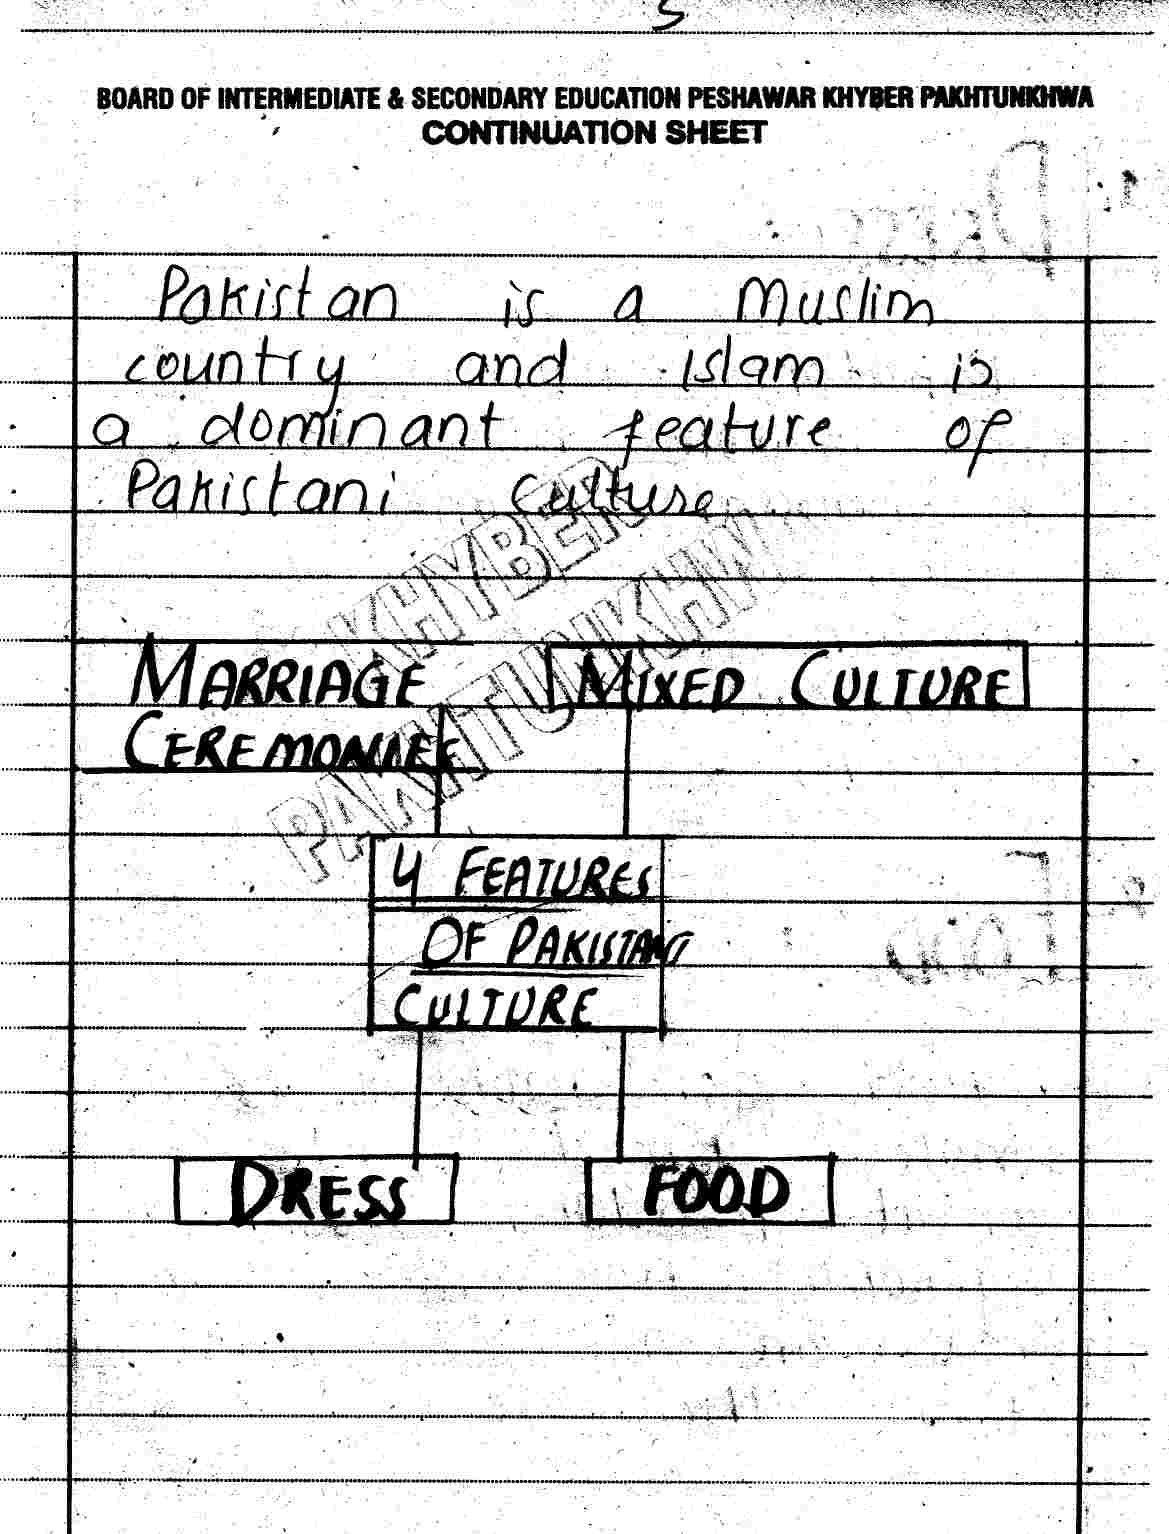 5
BOARD OF INTERMEDIATE & SECONDARY EDUCATION PESHAWAR KHYBER PAKHTUNKHWA
CONTINUATION SHEET
Pakistan is a Muslim
country and islam is
a dominant feature of
Pakistani culture
KHYBER
PAKHTUNKHW
MARRIAGE
CEREMONIES
MIXED CULTURE
4 FEATURES
OF PAKISTANI
CULTURE
DRESS
FOOD